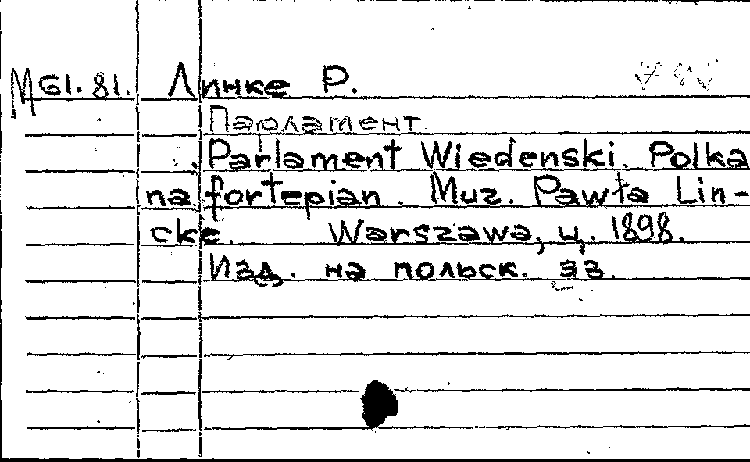 М 61.81. Линке Р.
Парламент.
Parlament Wiedenski. Polka
na fortepian. Muz. Pawła Lin-
cke. Warszawa, ц. 1898.
Изд. на польск. яз.